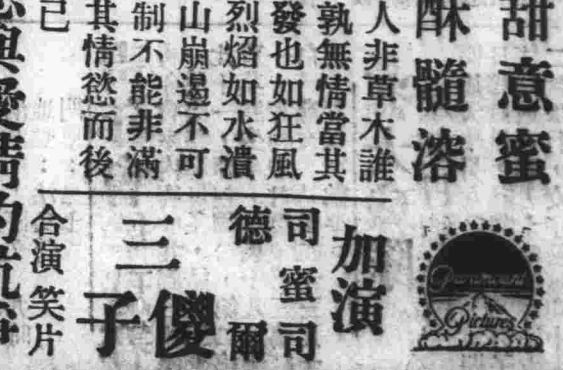 甜意蜜
酥髓溶
人非草木誰
孰無情當其
發也如狂風
烈熖如水潰
山崩遏不可
制不能非滿
其情慾而後
已
Paramount
Pictures
加演
司蜜司
德爾
三
傻子
合演笑片
與愛情的